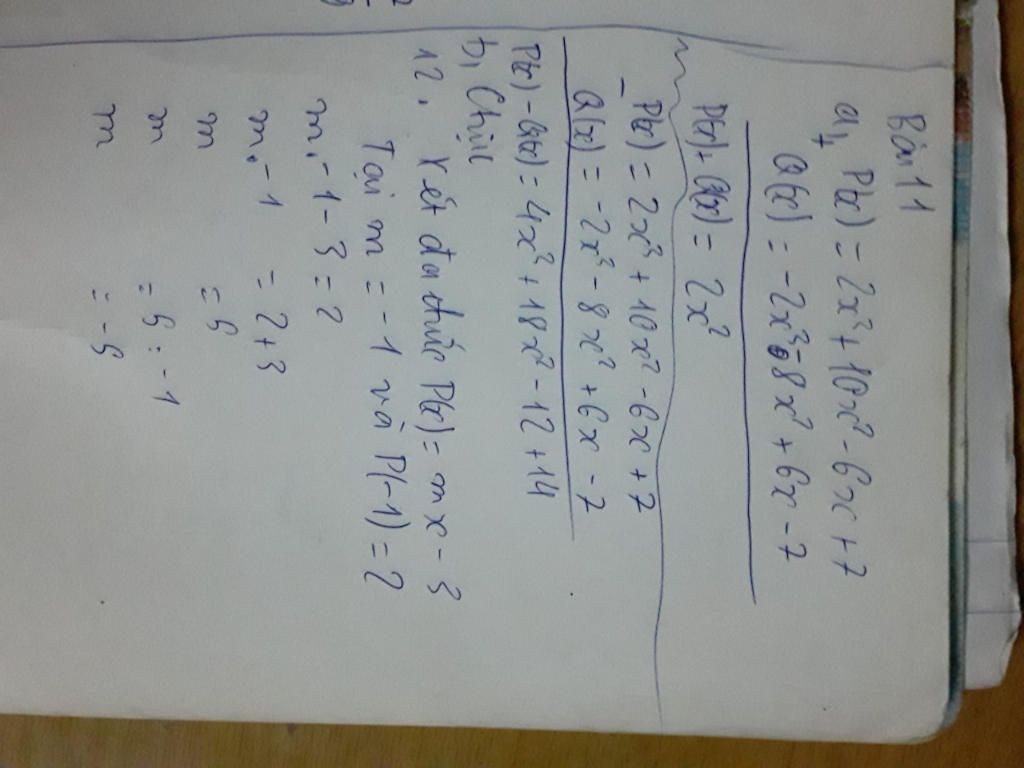 Bài 11
a, P(x) = 2x³ + 10x² - 6x + 7
+
Q(x) = -2x³ - 8x² + 6x - 7
P(x) + Q(x) = 2x²
- P(x) = 2x³ + 10x² - 6x + 7
Q(x) = -2x³ - 8x² + 6x - 7
P(x) - Q(x) = 4x³ + 18x² - 12 + 14
b, Chịu
12. Xét đa thức P(x) = mx - 3
Tại m = -1 và P(-1) = 2
m. -1 - 3 = 2
m. -1 = 2 + 3
m = 5
m = 5 : -1
m = -5